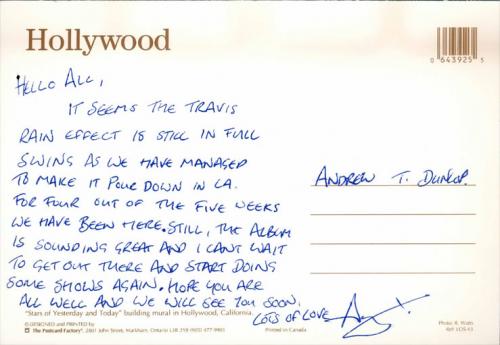 Hollywood
0 643925 5
HELLO ALL,
IT SEEMS THE TRAVIS
RAIN EFFECT IS STILL IN FULL
SWING AS WE HAVE MANAGED
TO MAKE IT POUR DOWN IN LA.
FOR FOUR OUT OF THE FIVE WEEKS
WE HAVE BEEN HERE. STILL, THE ALBUM
IS SOUNDING GREAT AND I CANT WAIT
TO GET OUT THERE AND START DOING
SOME SHOWS AGAIN. HOPE YOU ARE
ALL WELL AND WE WILL SEE YOU SOON.
LOTS OF LOVE
ANDREW T. DUNLOP.
"Stars of Yesterday and Today" building mural in Hollywood, California.
© DESIGNED and PRINTED by
The Postcard Factory, 2801 John Street, Markham, Ontario L3R 2Y8 (905) 477-9901
Printed in Canada
Photo: R. Watts
Ref: LOS-43